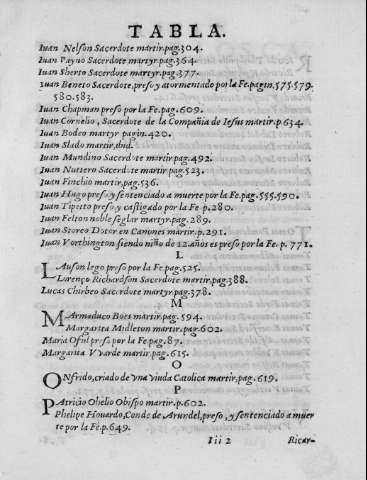 TABLA.
Iuan Nelson Sacerdote martir.pag.304.
Iuan Payno Sacerdote martyr.pag.364.
Iuan Sherto Sacerdote martyr.pag.377.
Iuan Beneto Sacerdote,preso y atormentado por la Fe.pagin.575.579.
580.583.
Iuan Chapman preso por la Fe.pag.609.
Iuan Cornelio, Sacerdote de la Compañia de Iesus martir.p.634.
Iuan Bodeo martyr pagin.420.
Iuan Slado martir.ibid.
Iuan Mundino Sacerdote martir.pag.492.
Iuan Nuttero Sacerdote martir.pag.523.
Iuan Finchio martir.pag.536.
Iuan Hugo preso y sentenciado a muerte por la Fe.pag.555.590.
Iuan Tipeto preso y castigado por la Fe p.280.
Iuan Felton noble seglar martyr.pag.289.
Iuan Storeo Dotor en Canones martir.p.291.
Iuan Vorthington siendo niño de 12.años es preso por la Fe. p. 771.
L
LAuson lego preso por la Fe.pag.525.
Lorenço Richardson Sacerdote martir.pag.388.
Lucas Chirbeo Sacerdote martyr.pag.378.
M
MArmaduco Boes martir.pag.594.
Margarita Midleton martir.pag.602.
Maria Oful preso por la Fe.pag.87.
Margarita VVarde martir.pag.615.
O
ONfrido,criado de vna viuda Catolica martir.pag.619.
P
PAtricio Ohelio Obispo martir.p.602.
Phelipe Houardo,Conde de Arundel,preso, y sentenciado a muer
te por la Fé.p.649.
Iii 2 Ricar-